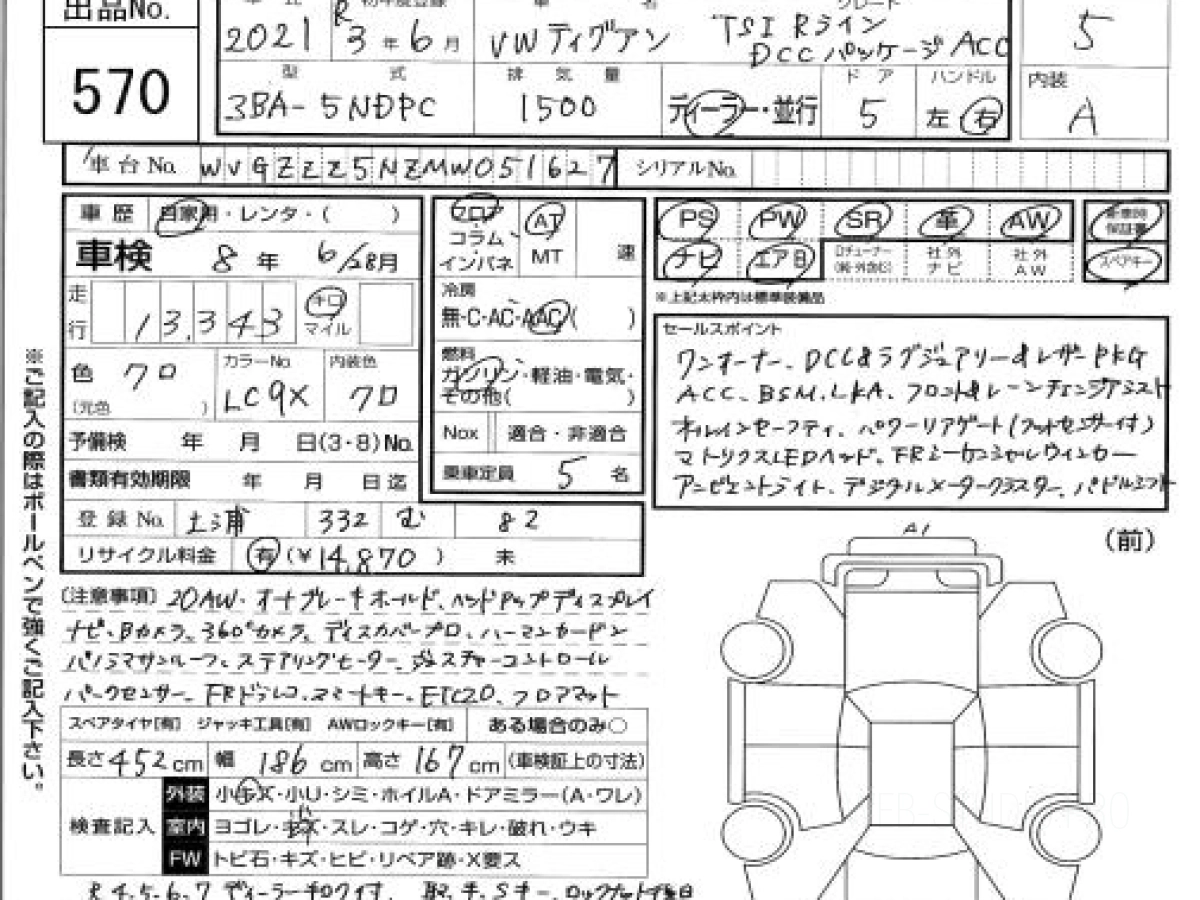 出品No. 年式 初年度登録 車名 グレード
570 2021 R 3年6月 VWティグアン TSI Rライン DCCパッケージACC 5
型式 排気量 ドア ハンドル 内装
3BA-5NDPC 1500 ディーラー・並行 5 左 右 A
車台No. WVGZZZ5NZMW051627 シリアルNo.
車歴 自家用・レンタ・( )
車検 8年 6/28月
走行 13,343 キロ マイル
色 クロ (元色 ) カラーNo LC9X 内装色 クロ
予備検 年 月 日(3・8)No.
書類有効期限 年 月 日迄
登録No. 土浦 332 む 82
リサイクル料金 有(¥14,870) 未
フロア コラム インパネ AT MT 速
冷房
無・C・AC・AAC( )
燃料
ガソリン・軽油・電気・その他( )
Nox 適合・非適合
乗車定員 5名
PS PW SR 革 AW 新車時保証書
ナビ エアB 社外ナビ 社外AW スペアキー
※上記太枠内は標準装備品
セールスポイント
ワンオーナー、DCC&ラグジュアリー&レザーPKG
ACC、BSM、LKA、フロント&レーンチェンジアシスト
オールインセーフティ、パワーリアゲート(フットセンサー付)
マトリクスLEDヘッド、FRシーケンシャルウィンカー
アンビエントライト、デジタルメータークラスター、パドルシフト
(注意事項) 20AW、オートブレーキホールド、ヘッドアップディスプレイ
ナビ、Bカメラ、360°カメラ、ディスカバープロ、ハーマンカードン
パノラマサンルーフ、ステアリングヒーター、ジェスチャーコントロール
パークセンサー、FRドラレコ、スマートキー、ETC2.0、フロアマット
スペアタイヤ[有] ジャッキ工具[有] AWロックキー[有] ある場合のみ○
長さ452cm 幅186cm 高さ167cm (車検証上の寸法)
検査記入
外装 小キズ・小U・シミ・ホイルA・ドアミラー(A・ワレ)
室内 ヨゴレ・キズ・スレ・コゲ・穴・キレ・破れ・ウキ
FW トビ石・キズ・ヒビ・リペア跡・X要ス
R4.5.6.7 ディーラーキロク付、取、手、Sキー、ロックナット
A1
(前)
※ご記入の際はボールペンで強くご記入下さい。